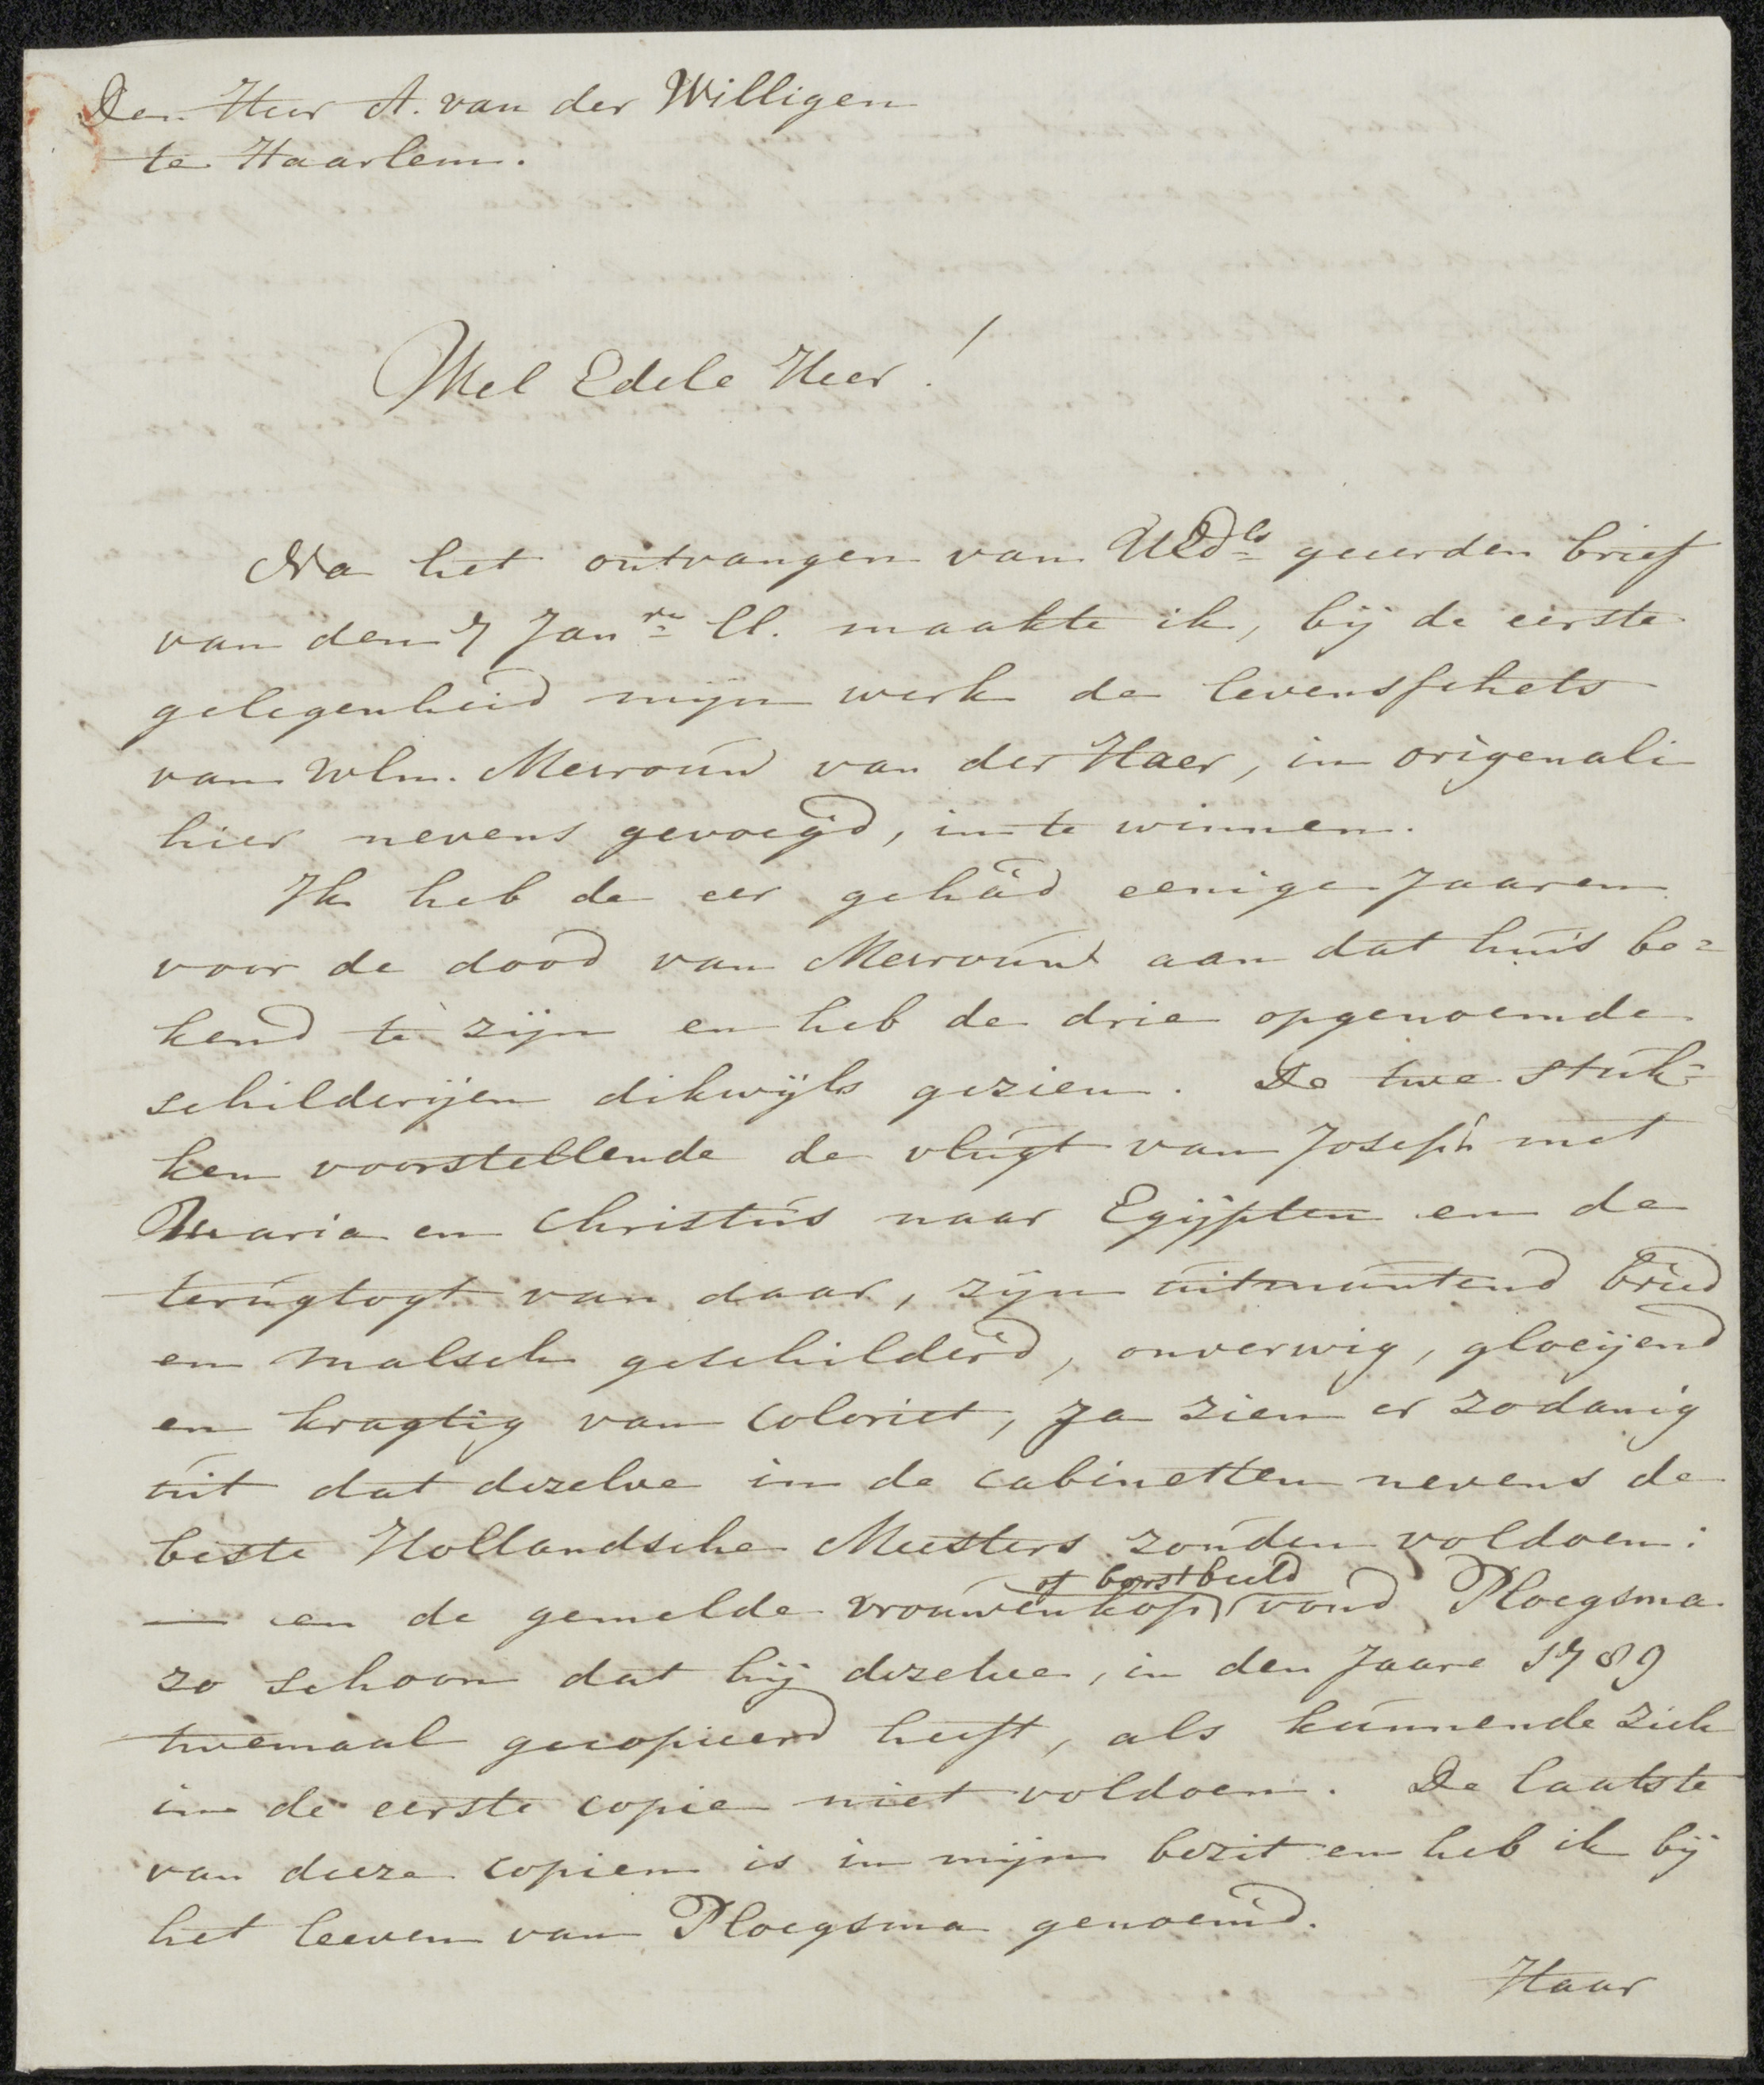 Den Heer A. van der Willigen
te Haarlem.
Wel Edele Heer!
Na het ontvangen van UEdls geeerden brief
van den 7 Janry ll. maakte ik, bij de eerste
gelegenheid mijn werk de levensschets
van Wlm. Mevrouw van der Haer, in origenali
hier nevens gevoegd, in te winnen.
Ik heb de eer gehad eenige Jaaren
voor de dood van Mevrouw aan dat huis be=
kend te zijn en heb de drie opgenoemde
schilderijen dikwijls gezien. De twe stuk=
ken voorstellende de vlugt van Joseph met
Maria en Christus naar Egijpten en de
terugtogt van daar, zijn uitmuntend breed
en malsch geschilderd, onverwig, gloeijend
en kragtig van Coloriet, Ja zien er zodanig
uit dat dezelve in de cabinetten nevens de
beste Hollandsche Meesters zouden voldoen:
— en de gemelde vrouwenkop of borstbeeld vond Ploegsma
zo schoon dat hij dezelve, in den Jaare 1789
twemaal gecopieerd heeft, als kunnende zich
in de eerste copie niet voldoen. De laatste
van deeze copien is in mijn bezit en heb ik bij
het leeven van Ploegsma genoemd.
Haar